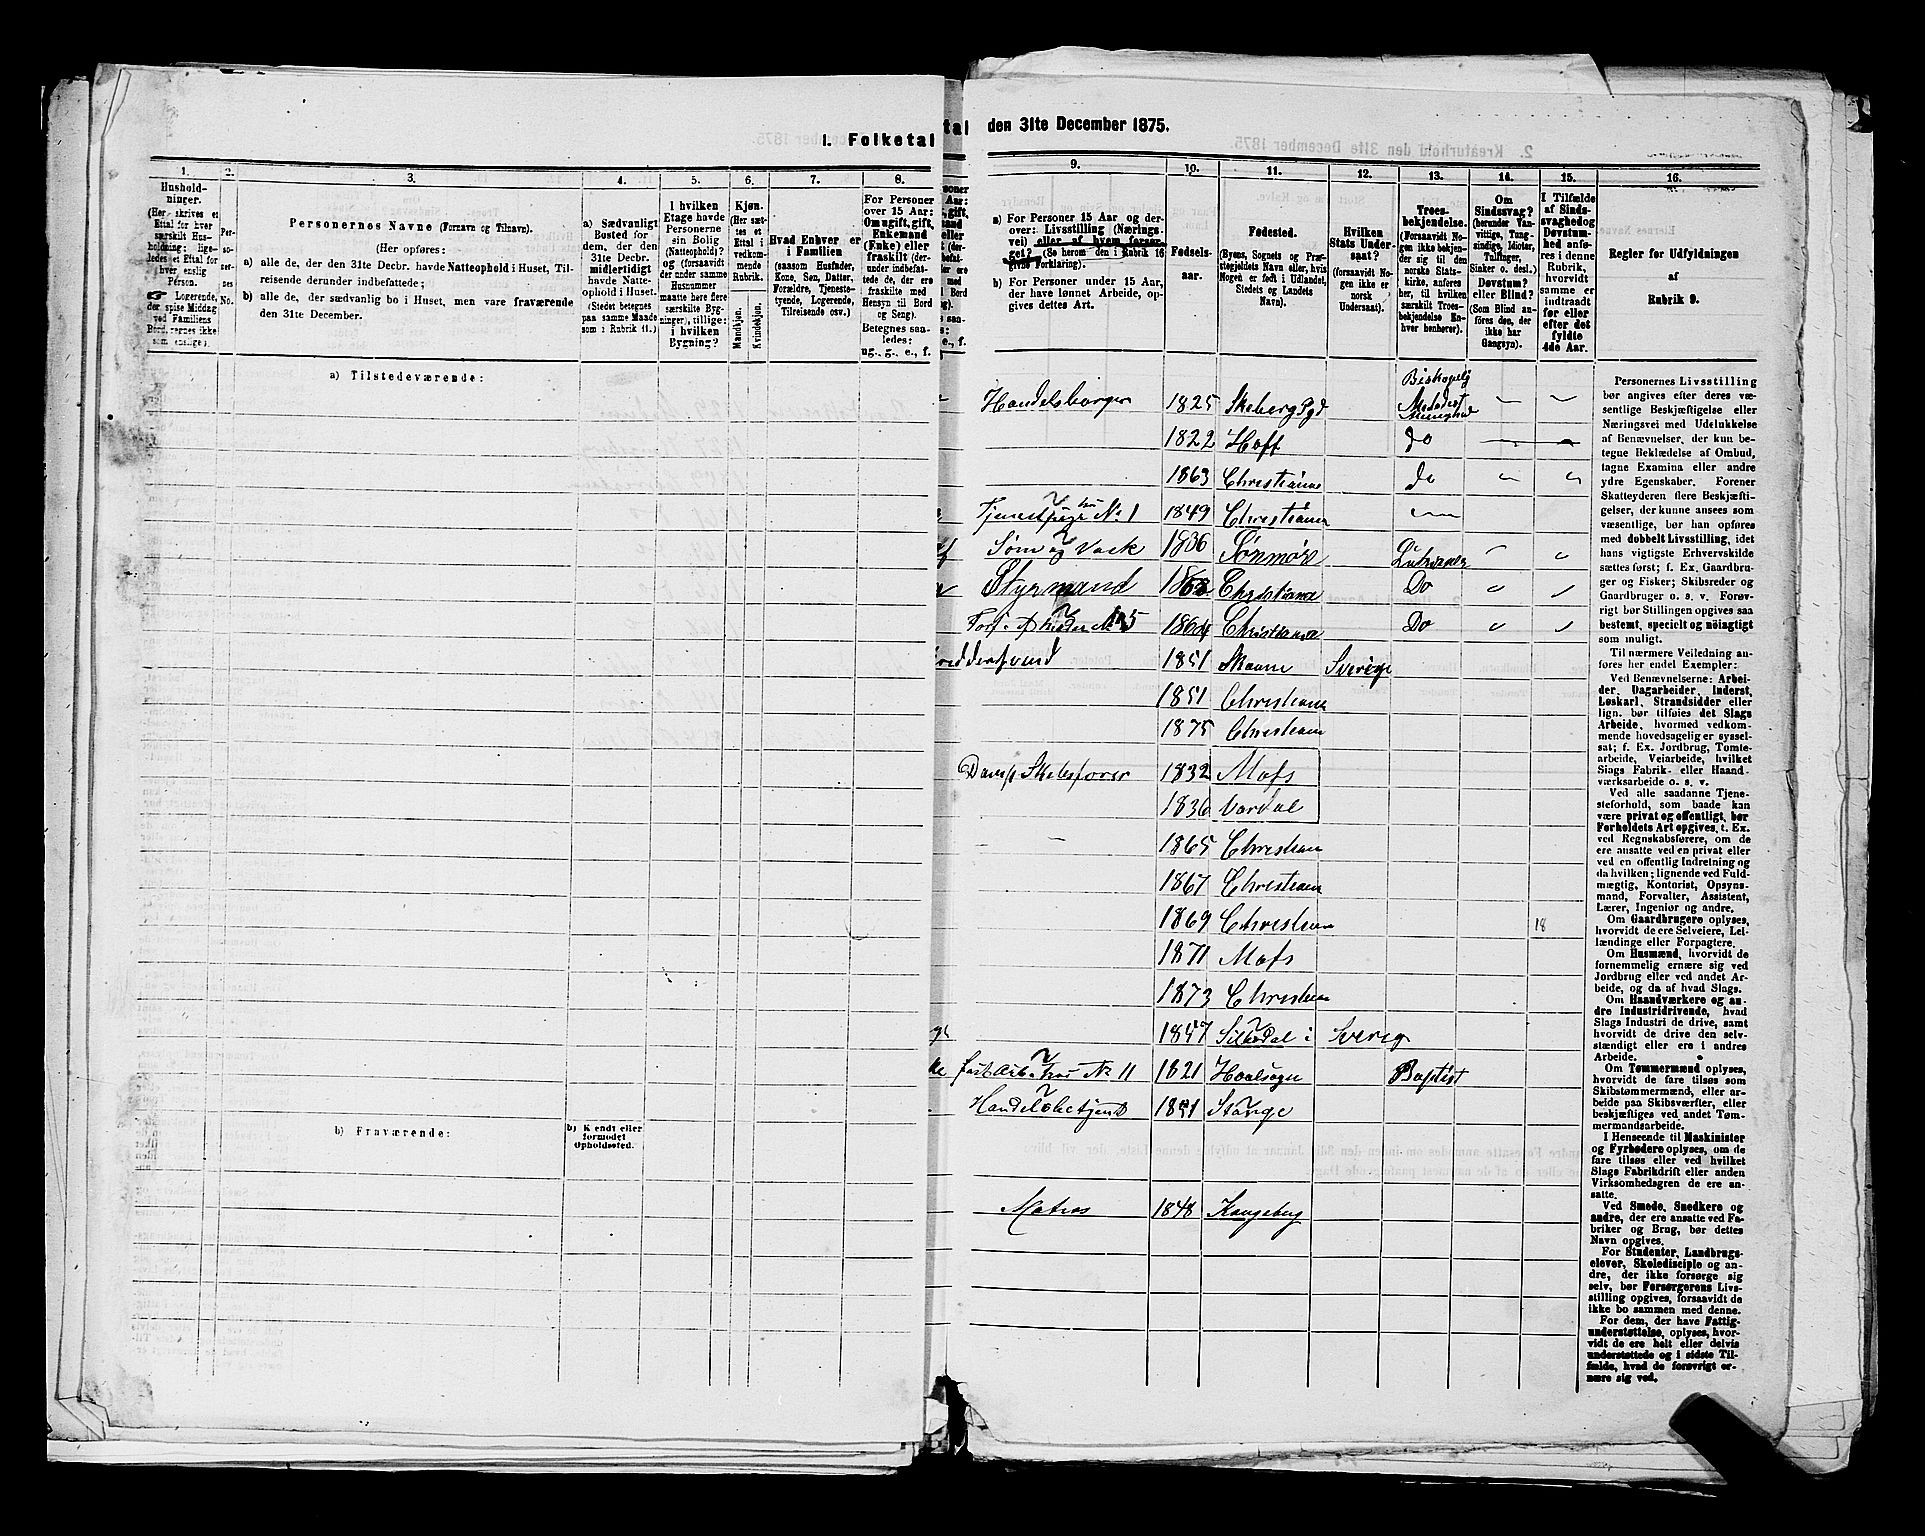 I. Folketal
tal den 31te December 1875.
1.
2.
3.
4.
5.
6.
7.
8.
Hushold-
ninger.
(Her skrives et
Ettal for hver
særskilt Hus-
holdning; lige-
ledes et Ettal for
hver enslig
Person.
☞ Logerende,
der spise Middag
ved Familiens
Bord, regnes ikke
som enslige).
Per-
so-
ner-
nes
No.
Personernes Navne (Fornavn og Tilnavn).
(Her opføres:
a) alle de, der den 31te Decbr. havde Natteophold i Huset, Til-
reisende derunder indbefattede;
b) alle de, der sædvanlig bo i Huset, men vare fraværende
den 31te December.
a) Sædvanligt
Bosted for
dem, der den
31te Decbr.
midlertidigt
havde Natte-
ophold i Huset.
(Stedet betegnes
paa samme Maade
som i Rubrik 11.)
I hvilken
Etage havde
Personerne
sin Bolig
(Natteophold)?
og (forsaavidt
der under samme
Husnummer
maatte høre flere
særskilte Byg-
ninger), tillige:
i hvilken
Bygning?
Kjøn.
(Her sæt-
tes et
Ettal i
vedkom-
mende
Rubrik.
Mandkjøn.
Kvindekjøn.
Hvad Enhver er
i Familien
(saasom Husfader,
Kone, Søn, Datter,
Forældre, Tjeneste-
tyende, Logerende,
Tilreisende osv.)
For Personer
over 15 Aar:
Om ugift, gift,
Enkemand
(Enke) eller
fraskilt (der-
under indbefat-
tede de, der ere
fraskilte med
Hensyn til Bord
og Seng).
Betegnes saa-
ledes:
ug., g., e., f.
a) Tilstedeværende:
b) Fraværende:
b) Kjendt eller
formodet
Opholdssted.
9.
10.
11.
12.
13.
14.
15.
16.
a) For Personer 15 Aar og der-
over: Livsstilling (Nærings-
vei) eller af hvem forsør-
get? (Se herom den i Rubrik 16
givne Forklaring).
b) For Personer under 15 Aar,
der have lønnet Arbeide, op-
gives dettes Art.
Fødsels-
aar.
Fødested.
(Byens, Sognets og Præ-
stegjeldets Navn eller, hvis
Nogen er født i Udlandet,
Stedets og Landets
Navn).
Hvilken
Stats Under-
saat?
(forsaavidt No-
gen ikke er
norsk
Undersaat).
Troes-
bekjendelse.
(Forsaavidt No-
gen ikke bekjen-
der sig til den
norske Stats-
kirke, anføres
her, til hvilken
særskilt Troes-
bekjendelse En-
hver henhører).
Om
Sindssvag?
(herunder Van-
vittige, Tung-
sindige, Idioter,
Tullinger,
Sinker o. desl.)
Døvstum?
eller Blind?
(Som Blind an-
føres den, der
ikke har
Gangsyn).
I Tilfælde
af Sinds-
svaghed og
Døvstum-
hed anfø-
res i denne
Rubrik,
hvorvidt
samme er
indtraadt
før eller
efter det
fyldte
4de Aar.
Regler for Udfyldningen
af
Rubrik 9.
Handelsborger 1825 Skeberg Pgd Biskopelg Metodist
1822 Hoff do
1863 Christiania do
Tjenestpige hos No 1 1849 Christiania
Søm og Vask 1836 Sønmøre Lutheraner
Styrmand Christiania Do
Fors. af Moder No 5 1864 Christiania Do
1851 Skaane Sverige
1851 Christiania
1875 Christiania
Damp Skibsfører 1832 Mofs
1836 Vardal
1865 Christiania
1867 Christiania
1869 Christiania 18
1871 Mofs
1873 Christiania
1847 Silbodal i Sverig
fast Arb. hos No 11 1821 Baptist
Handelsbetjent Stange
Matros 1848 Kongsberg
Personernes Livsstilling
bør angives efter deres væ-
sentlige Beskjæftigelse eller
Næringsvei med Udelukkelse
af Benævnelser, der kun be-
tegne Beklædelse af Ombud,
tagne Examina eller andre
ydre Egenskaber. Forener
Skatteyderen flere Beskjæfti-
gelser, der kunne ansees som
væsentlige, bør han opføres
med dobbelt Livsstilling, idet
hans vigtigste Erhvervskilde
sættes først; f. Ex. Gaardbru-
ger og Fisker; Skibsreder og
Gaardbruger o. s. v. Forøv-
rigt bør Stillingen opgives saa
bestemt, specielt og nøiagtigt
som muligt.
Til nærmere Veiledning an-
føres her endel Exempler:
Ved Benævnelserne: Arbei-
der, Dagarbeider, Inderst,
Løskarl, Strandsidder eller
lign. bør tilføies det Slags
Arbeide, hvormed vedkom-
mende hovedsagelig er syssel-
sat; f. Ex. Jordbrug, Tomte-
arbeide, Veiarbeide, hvilket
Slags Fabrik- eller Haand-
værksarbeide o. s. v.
Ved alle saadanne Tjene-
steforhold, som baade kan
være privat og offentligt, bør
Forholdets Art opgives, t. Ex.
ved Regnskabsførere, om de
ere ansatte ved en privat eller
ved en offentlig Indretning og
da hvilken; lignende ved Fuld-
mægtig, Kontorist, Opsyns-
mand, Forvalter, Assistent,
Lærer, Ingeniør og andre.
Om Gaardbrugere oplyses,
hvorvidt de ere Selveiere, Lei-
lændinge eller Forpagtere.
Om Husmænd, hvorvidt de
fornemmelig ernære sig ved
Jordbrug eller ved andet Ar-
beide, og da af hvad Slags.
Om Haandværkere og an-
dre Industridrivende, hvad
Slags Industri de drive, samt
hvorvidt de drive den selv-
stændigt eller ere i andres
Arbeide.
Om Tømmermænd oplyses,
hvorvidt de fare tilsøs som
Skibstømmermænd, eller ar-
beide paa Skibsværfter, eller
beskjæftiges ved andet Tøm-
mermandsarbeide.
I Henseende til Maskinister
og Fyrbødere oplyses, om de
fare tilsøs eller ved hvilket
Slags Fabrikdrift eller anden
Virksomhedsgren de ere an-
satte.
Ved Smede, Snedkere og
andre, der ere ansatte ved Fa-
briker og Brug, bør dettes
Navn opgives.
For Studenter, Landbrugs-
elever, Skoledisciple og an-
dre, der ikke forsørge sig
selv, bør Forsørgerens Livs-
stilling opgives, forsaavidt de
ikke bo sammen med denne.
For dem, der have Fattig-
understøttelse, oplyses, hvor-
vidt de ere helt eller delvis
understøttede og i sidste Til-
fælde, hvad de forøvrigt er-
nære sig ved.